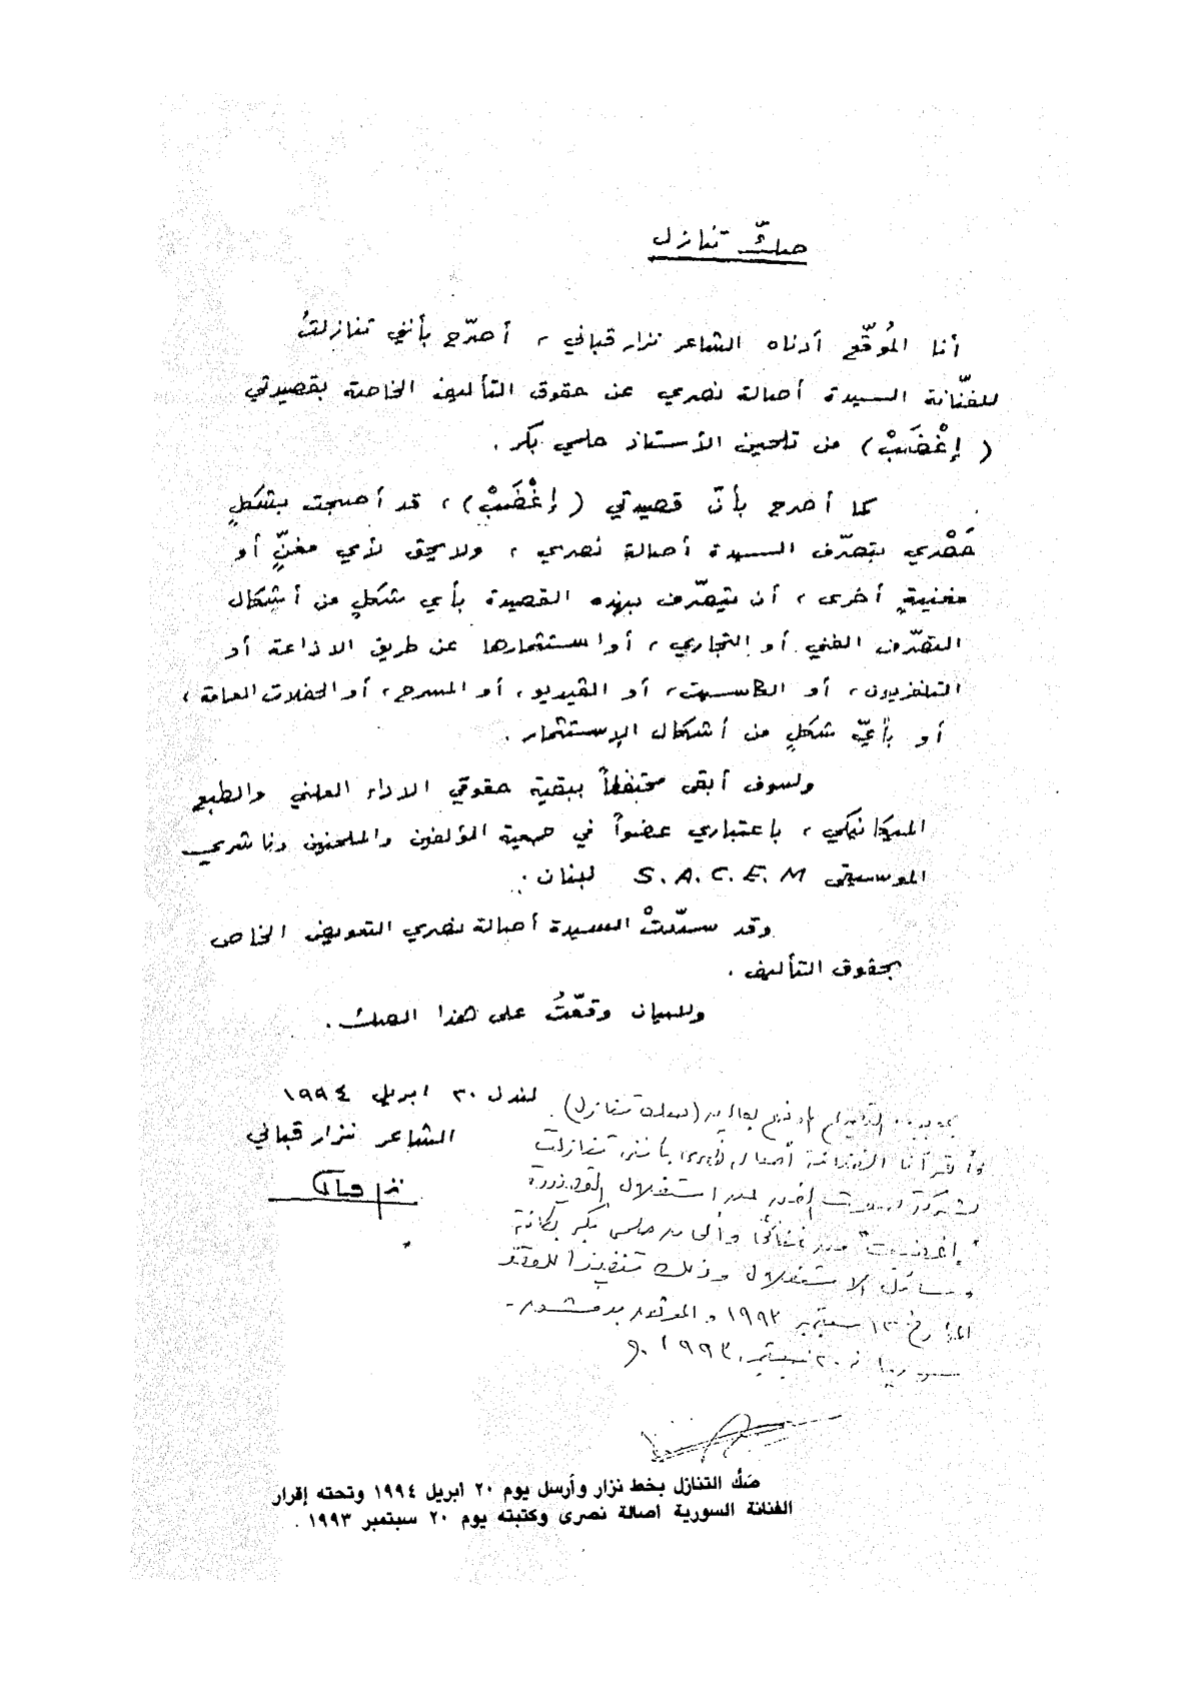 صكّ تنازل
أنا المُوقّع أدناه الشاعر نزار قباني ، أصرّح بأنني تنازلتُ
للفنّانة السيدة أصالة نصري عن حقوق التأليف الخاصة بقصيدتي
( إغْضَبْ ) من تلحين الأستاذ حلمي بكر .
كما أصرح بأنّ قصيدتي ( إغْضَبْ ) ، قد أصبحت بشكلٍ
حَصْري بتصرّف السيدة أصالة نصري ، ولا يحق لأي مغنّ أو
مغنيةٍ أخرى ، أن يتصرّف بهذه القصيدة بأي شكلٍ من أشكال
التصرّف الفني أو التجاري ، أو استثمارها عن طريق الاذاعة أو
التلفزيون ، أو الكاسيت ، أو الفيديو ، أو المسرح ، أو الحفلات العامة ،
أو بأيّ شكلٍ من أشكال الإستثمار .
ولسوف أبقى محتفظاً ببقية حقوقي الاداء العلني والطبع
الميكانيكي ، باعتباري عضواً في جمعية المؤلفين والملحنين وناشري
الموسيقى S.A.C.E.M لبنان .
وقد سدّدتْ السيدة أصالة نصري التعويض الخاص
بحقوق التأليف .
وللبيان وقّعتُ على هذا الصك .
لندن ٣٠ ابريل ١٩٩٤
الشاعر نزار قباني
نزار قباني
(صك تنازل) .
وأقر أنا الفنانة أصالة نصري بأنني تنازلت
لشركة استغلال القصيدة
"إغضب" حلمي بكر بكافة
وسائل الاستغلال وذلك تنفيذا للعقد
المؤرخ ١٣ سبتمبر ١٩٩٣ والموثق بدمشق -
سوريا في ٢٠ سبتمبر ١٩٩٣ .
صَكُّ التنازل بخط نزار وأرسل يوم ٢٠ ابريل ١٩٩٤ وتحته إقرار
الفنانة السورية اصالة نصرى وكتبته يوم ٢٠ سبتمبر ١٩٩٣ .